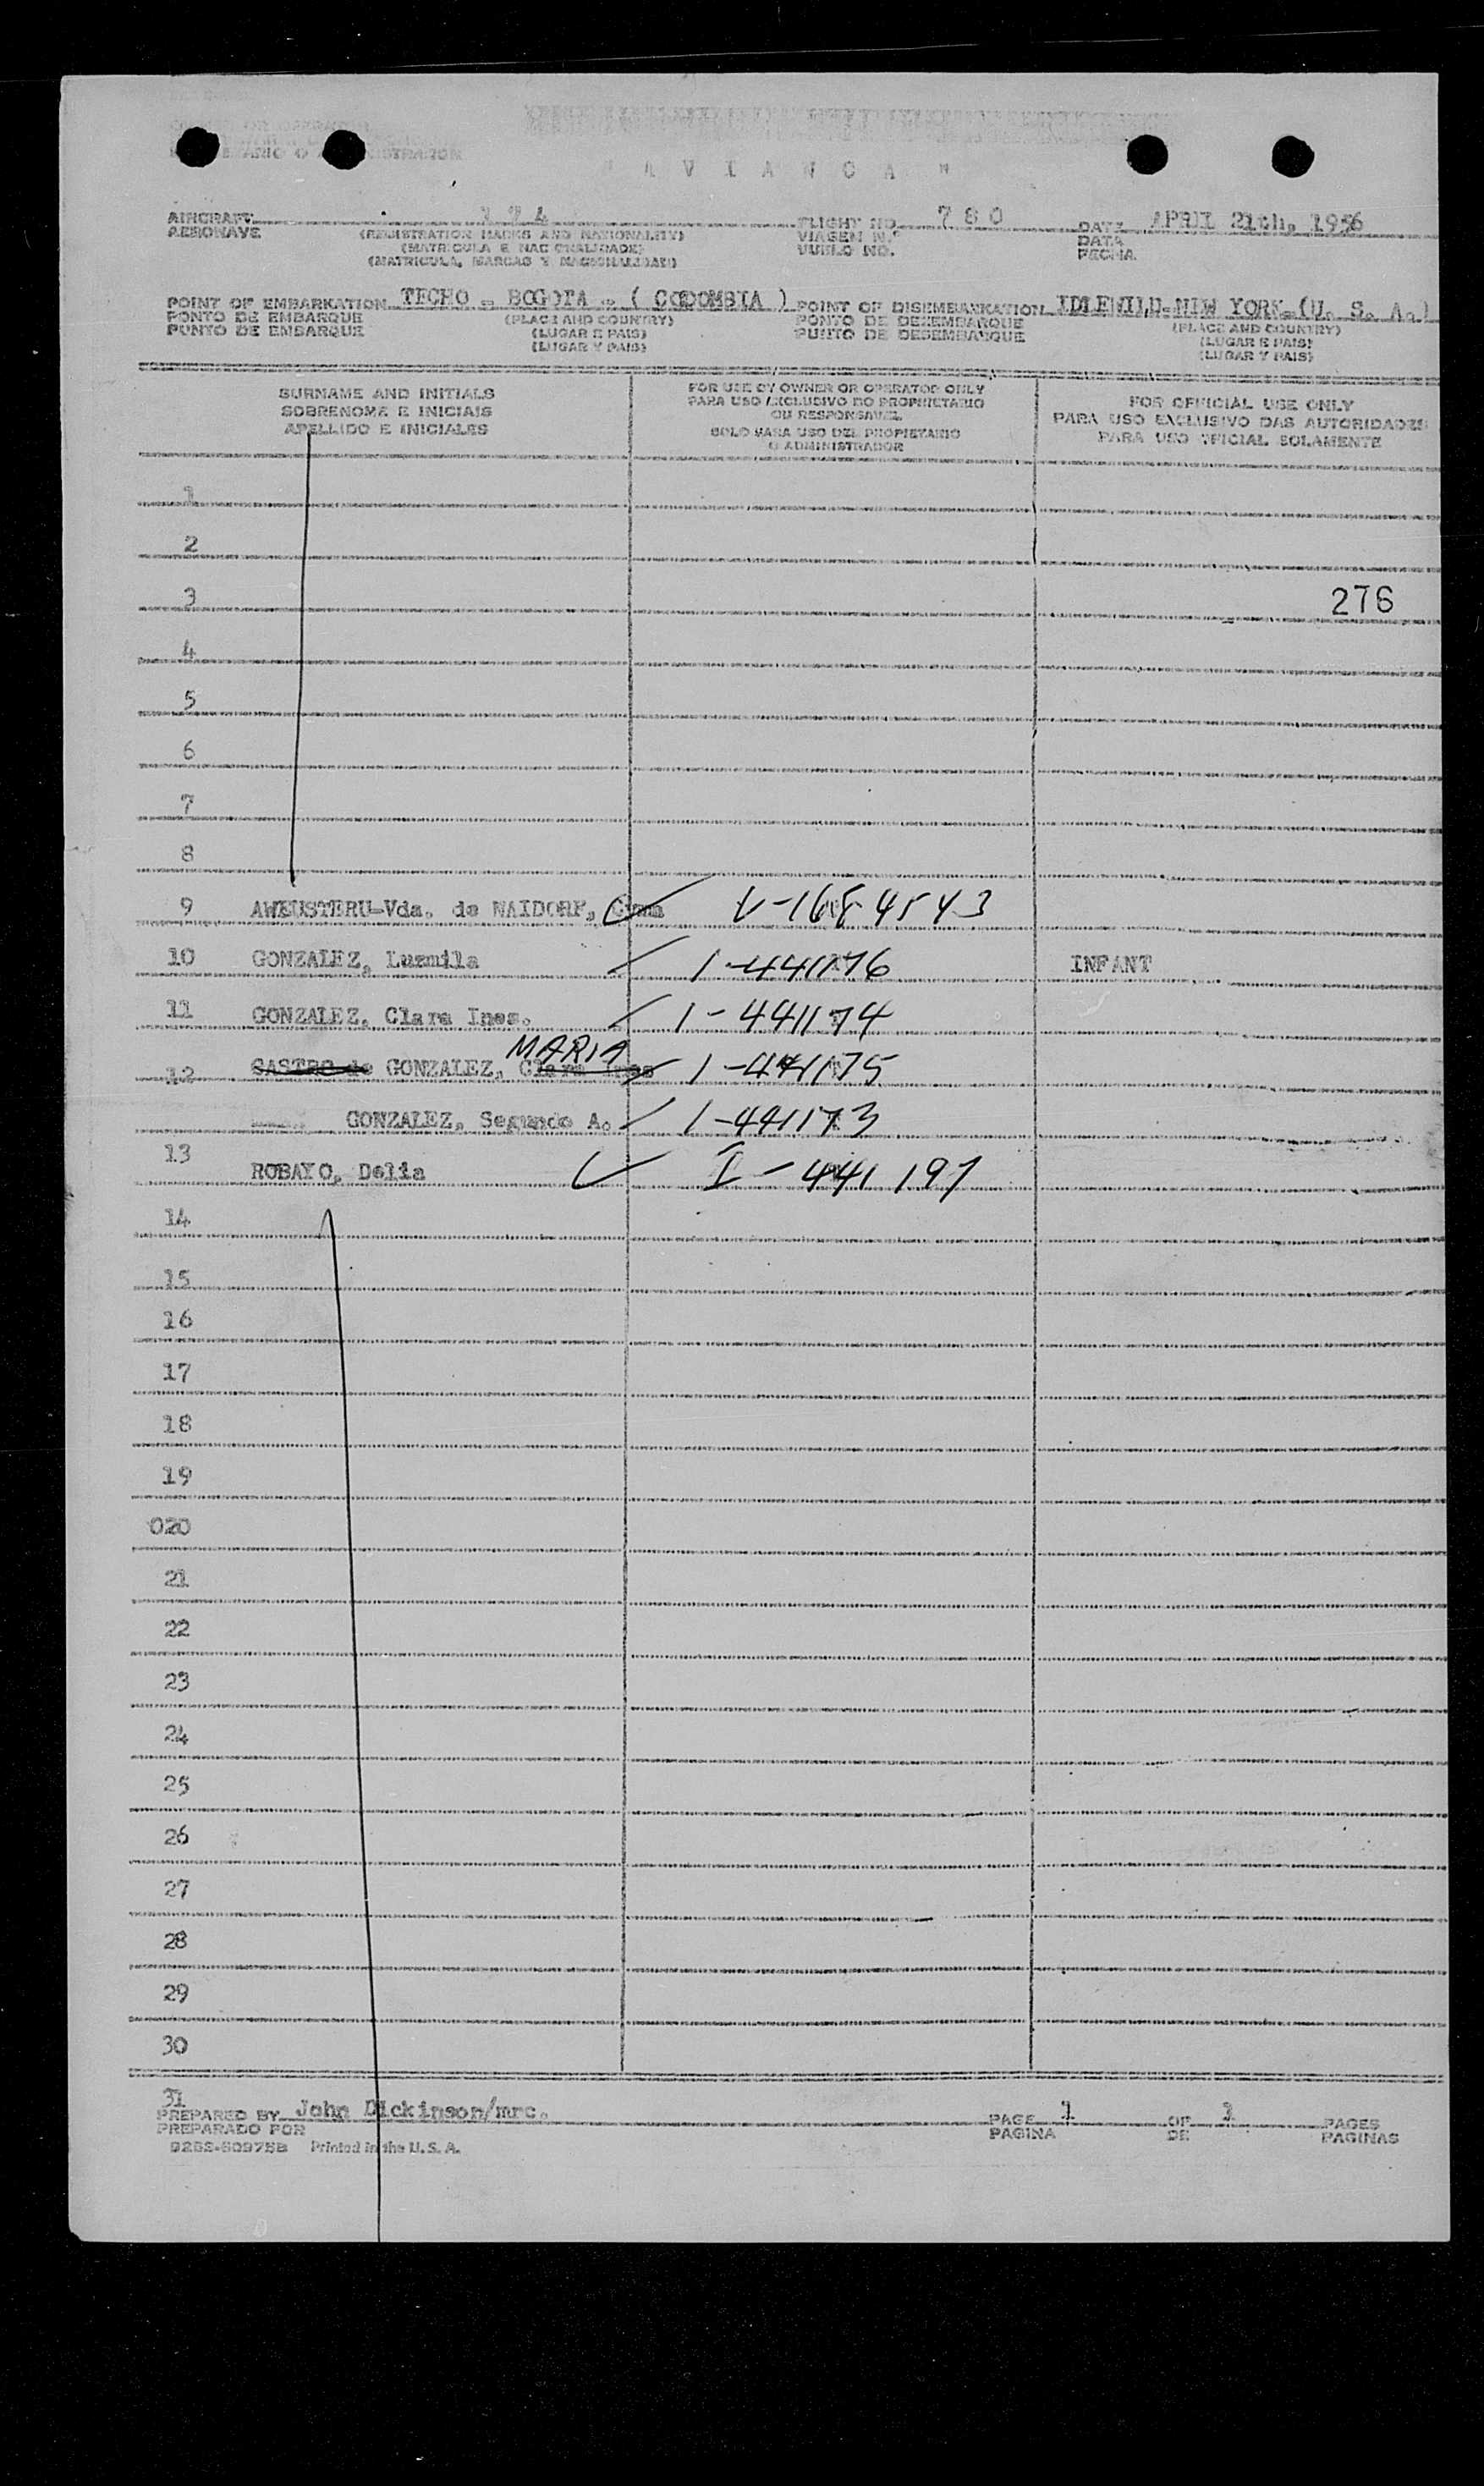 " A V I A N C A "
AIRCRAFT 174 FLIGHT NO. 780 DATE APRIL 21th, 1956
AERONAVE (REGISTRATION MARKS AND NATIONALITY) VIAGEN N.º DATA
(MATRICULA E NACIONALIDADE) VUELO NO. FECHA
(MATRICULA, MARCAS Y NACIONALIDAD)
POINT OF EMBARKATION TECHO - BOGOTA - ( COLOMBIA ) POINT OF DISEMBARKATION IDLEWILD-NEW YORK-(U. S. A.)
PONTO DE EMBARQUE (PLACE AND COUNTRY) PONTO DE DESEMBARQUE (PLACE AND COUNTRY)
PUNTO DE EMBARQUE (LUGAR E PAIS) PUNTO DE DESEMBARQUE (LUGAR E PAIS)
(LUGAR Y PAIS) (LUGAR Y PAIS)
SURNAME AND INITIALS
SOBRENOME E INICIAIS
APELLIDO E INICIALES
FOR USE BY OWNER OR OPERATOR ONLY
PARA USO EXCLUSIVO DO PROPRIETARIO
OU RESPONSAVEL
SOLO PARA USO DEL PROPIETARIO
O ADMINISTRADOR
FOR OFFICIAL USE ONLY
PARA USO EXCLUSIVO DAS AUTORIDADES
PARA USO OFICIAL SOLAMENTE
1
2
3 276
4
5
6
7
8
9 AWEUSTERU-Vda. de NAIDORF, V-1684543
10 GONZALEZ, Luzmila 1-441176 INFANT
11 GONZALEZ, Clara Ines. 1-441174
MARIA
12 CASTRO de GONZALEZ, Clara Ines 1-441175
GONZALEZ, Segundo A. 1-441173
13
ROBAYO, Delia I-441197
14
15
16
17
18
19
020
21
22
23
24
25
26
27
28
29
30
31
PREPARED BY John Dickinson/mrc. PAGE 1 OF 1 PAGES
PREPARADO POR PAGINA DE PAGINAS
9262-60975B Printed in the U. S. A.